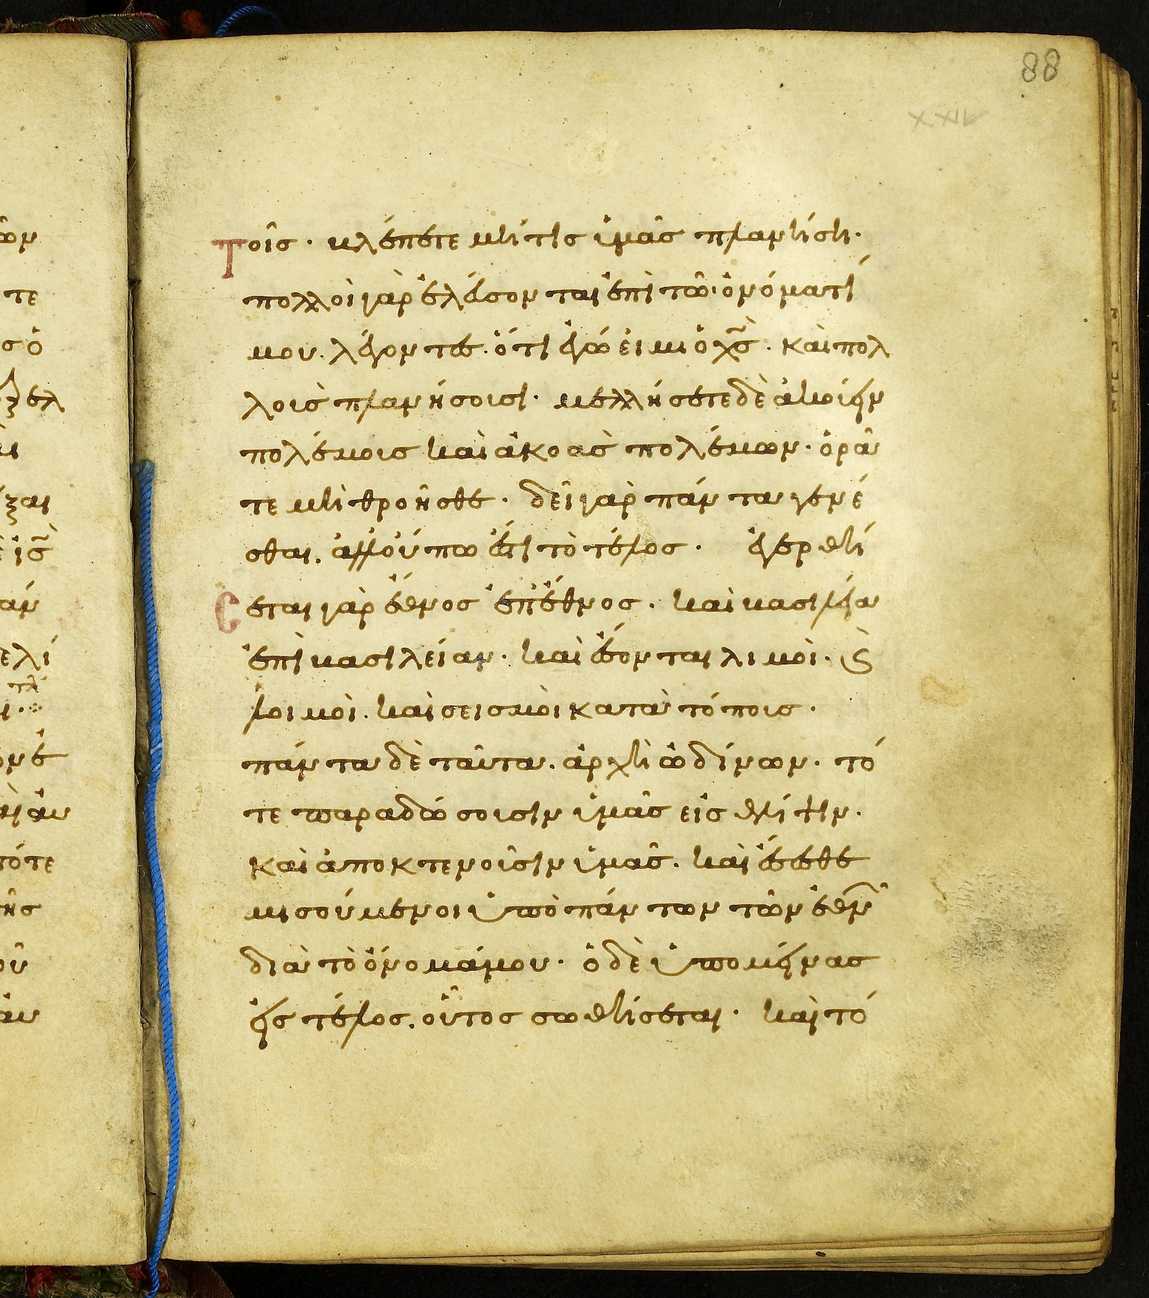 88
XXIV
ῶν
τοῖς · βλέπετε μήτις ὑμᾶς πλανήσῃ ·
τε
πολλοὶ γὰρ ἐλεύσονται ἐπὶ τῶ ὀνόματί
σὁ
μου λέγοντες · ὅτι ἐγώ εἰμι ὁ χ̅ς̅ · καὶ πολ
ελ
λοὺς πλανήσουσι · μελλήσετε δὲ ἀκούειν
πολέμους καὶ ἀκοὰς πολέμων · ὁρᾶ
ξαι
τε μὴ θροῆσθε · δεῖ γὰρ πάντα γενέ
ἰ̅ς̅
σθαι . ἀλλ οὔπω ἐστὶ τὸ τέλος · ἐγερθή
άν
σεται γὰρ ἔθνος ἐπ ἔθνος . καὶ βασιλεία
ελί
ἐπὶ βασιλείαν · καὶ ἔσονται λιμοὶ · ϗ
λοιμοὶ . καὶ σεισμοὶ κατὰ τόπους ·
πάντα δὲ ταῦτα . ἀρχὴ ὠδίνων · τό
τε παραδώσουσιν ὑμᾶς εἰς θλίψιν .
τότε
καὶ ἀποκτενοῦσιν ὑμᾶς . καὶ ἔσεσθε
ῆς
μισούμενοι ὑπὸ πάντων τῶν ἐθνῶν
διὰ τὸ ὄνομά μου · ὁ δὲ ὑπομείνας
εἰς τέλος . οὗτος σωθήσεται · καὶ τὸ